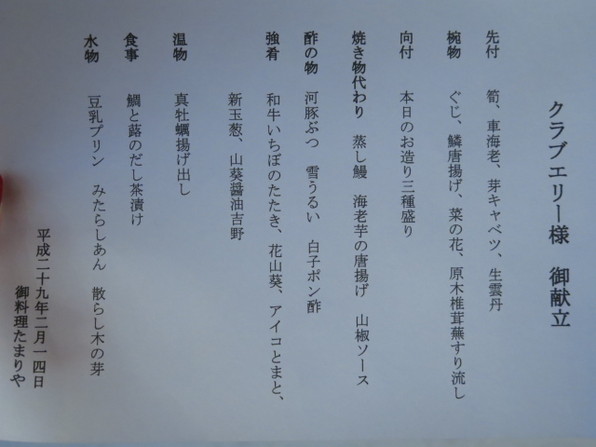 クラブエリー様 御献立
先付 筍、車海老、芽キャベツ、生雲丹
椀物 ぐじ、鱗唐揚げ、菜の花、原木椎茸蕪すり流し
向付 本日のお造り三種盛り
焼き物代わり 蒸し鰻 海老芋の唐揚げ 山椒ソース
酢の物 河豚ぶつ 雪うるい 白子ポン酢
強肴 和牛いちぼのたたき、花山葵、アイコとまと、
新玉葱、山葵醤油吉野
温物 真牡蠣揚げ出し
食事 鯛と蕗のだし茶漬け
水物 豆乳プリン みたらしあん 散らし木の芽
平成二十九年二月一四日
御料理たまりや